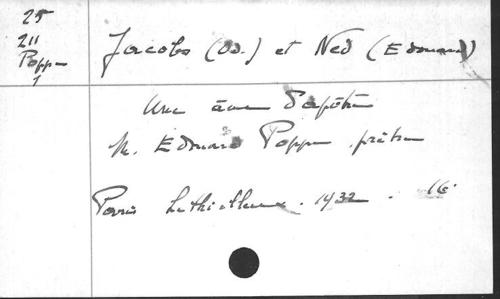 25
211
Poppe
1
Jacobs (Od.) et Ned (Edouard)
Une âme d'apôtre
M. Edouard Poppe prêtre
Paris Lethielleux. 1932. 16.